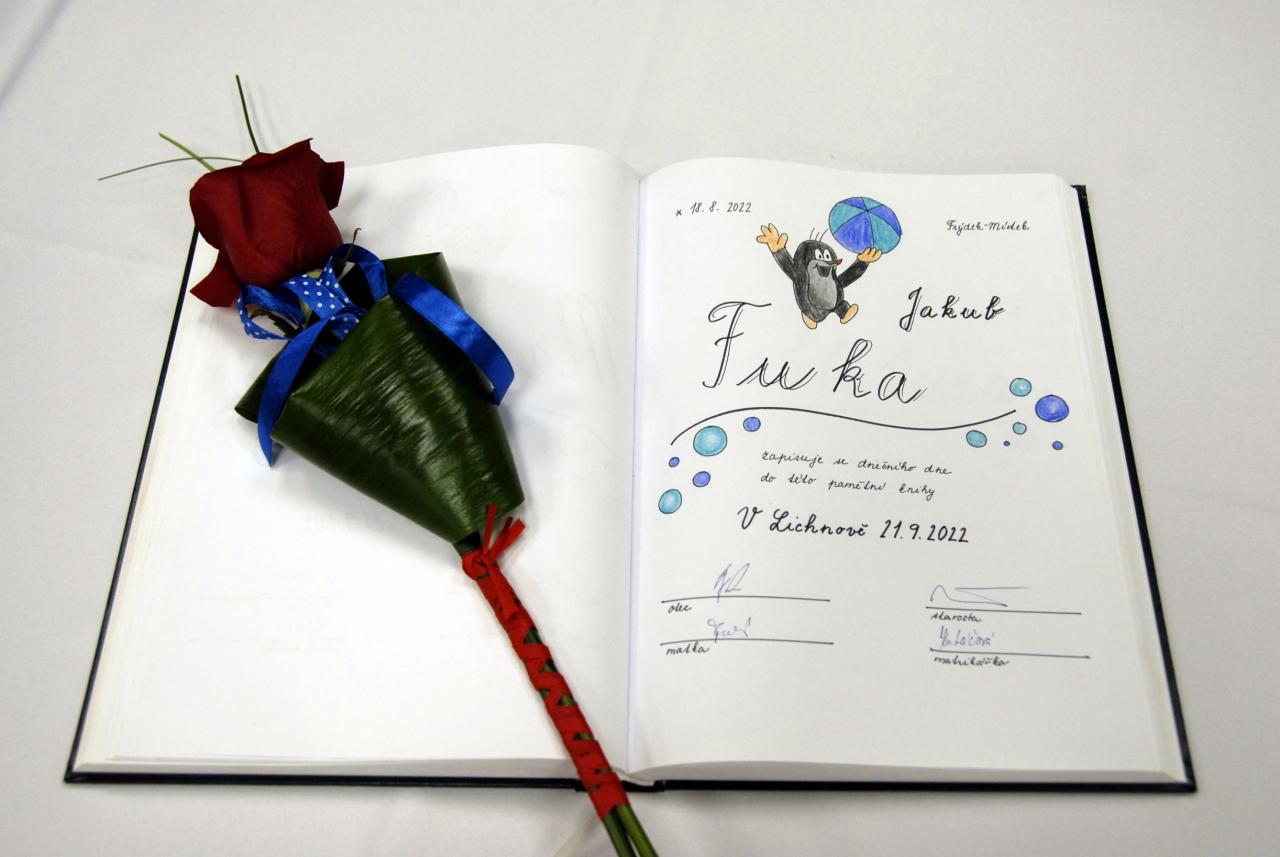 * 18. 8. 2022
Frýdek-Místek
Jakub
Fuka
zapisuje se dnešního dne
do této pamětní knihy
V Lichnově 21.9.2022
otec
starosta
matka
matrikářka